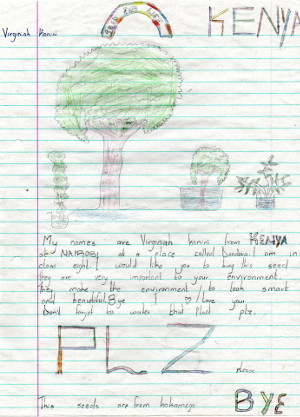 KENYA
Virginiah Kanini
My names are Virginiah kanini from KENYA
at NAIROBI at a place called Dandora I am in
class eight. I would like you to buy this seed
they are very important to your environment.
they make the environment to look smart
and beautiful. Bye I love you
Don't forget to water that plant plz.
PLZ
BYE
This seeds are from kakamega